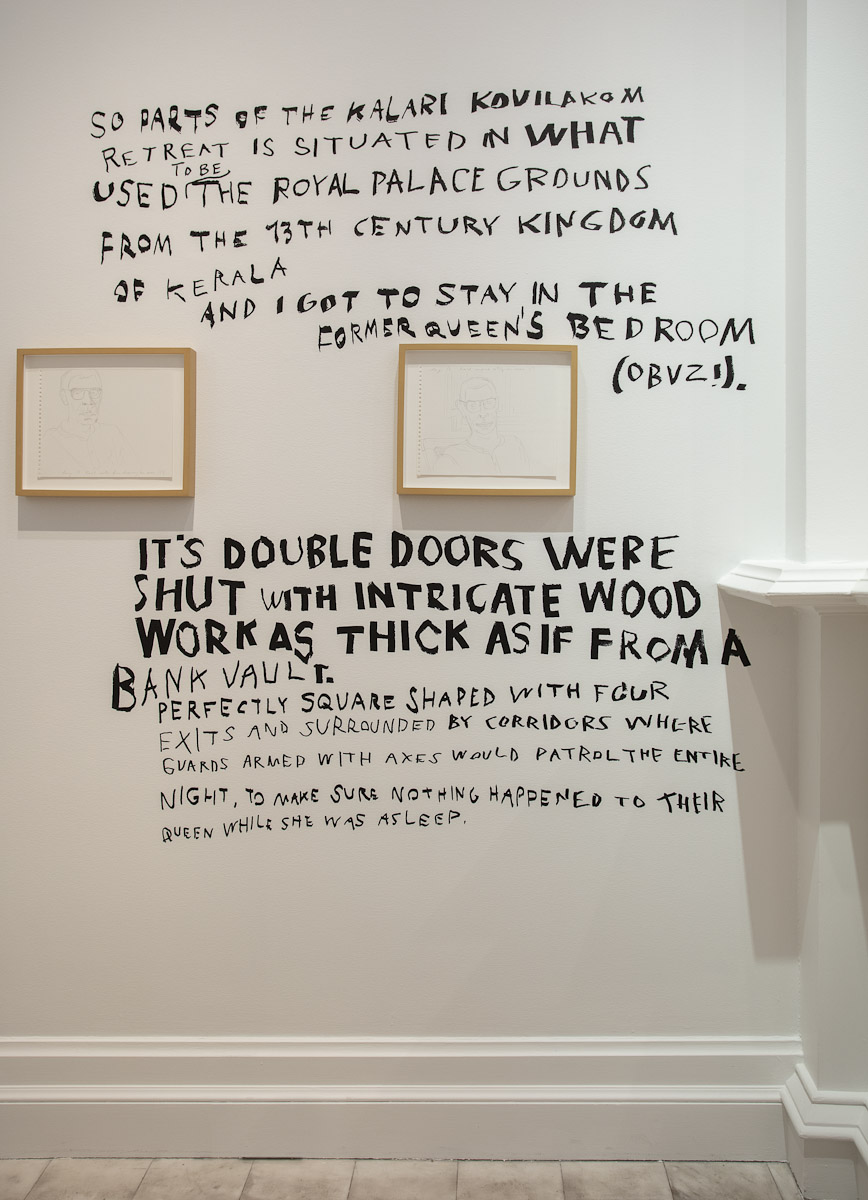 SO PARTS OF THE KALARI KOVILAKOM
RETREAT IS SITUATED IN WHAT
TO BE
USED THE ROYAL PALACE GROUNDS
FROM THE 13TH CENTURY KINGDOM
OF KERALA
AND I GOT TO STAY IN THE
FORMER QUEEN'S BEDROOM
(OBVZ!).
IT'S DOUBLE DOORS WERE
SHUT WITH INTRICATE WOOD
WORK AS THICK AS IF FROM A
BANK VAULT.
PERFECTLY SQUARE SHAPED WITH FOUR
EXITS AND SURROUNDED BY CORRIDORS WHERE
GUARDS ARMED WITH AXES WOULD PATROL THE ENTIRE
NIGHT, TO MAKE SURE NOTHING HAPPENED TO THEIR
QUEEN WHILE SHE WAS ASLEEP.